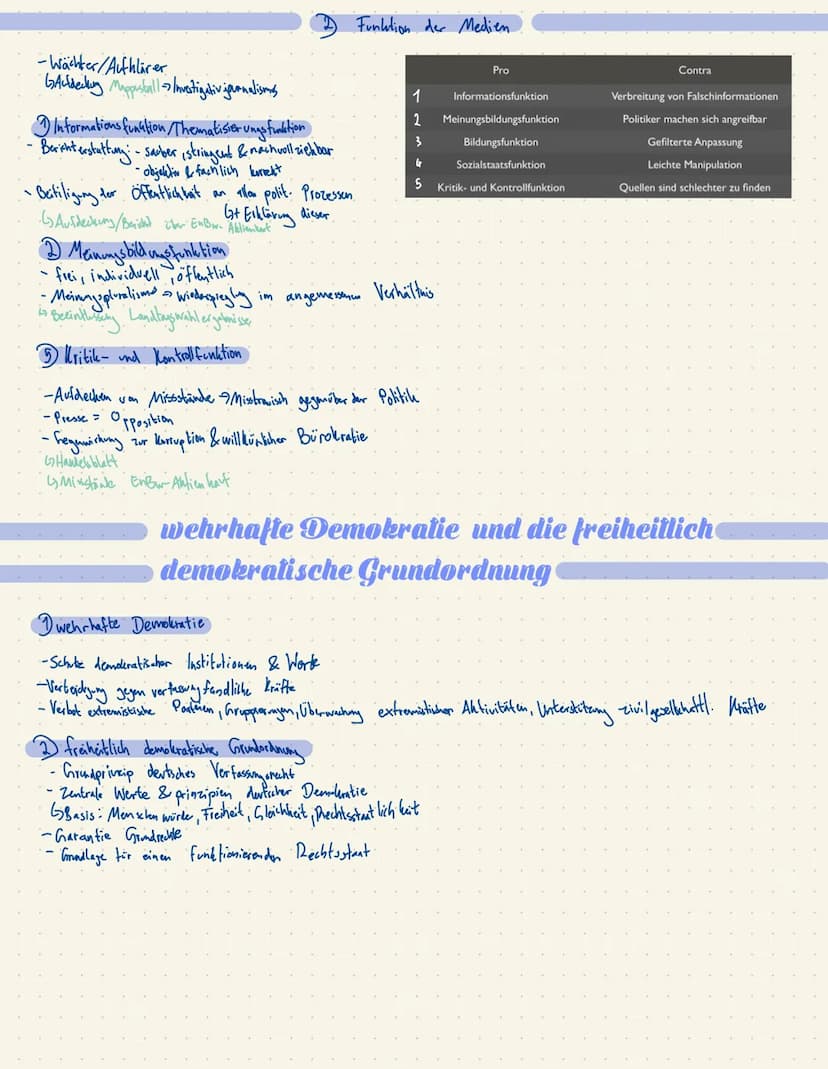 2) Funktion der Medien
- Wächter/Aufklärer
↳ Aufdeckung Mappusfall → Investigativjournalismus
Pro Contra
1 Informationsfunktion Verbreitung von Falschinformationen
2 Meinungsbildungsfunktion Politiker machen sich angreifbar
3 Bildungsfunktion Gefilterte Anpassung
4 Sozialstaatsfunktion Leichte Manipulation
5 Kritik- und Kontrollfunktion Quellen sind schlechter zu finden
1) Informationsfunktion/Thematisierungsfunktion
- Berichterstattung: - sauber, stringent & nachvollziehbar
- objektiv & fachlich korrekt
- Beteiligung der Öffentlichkeit an allen polit. Prozessen
↳ + Erklärung dieser
↳ Aufdeckung/Bericht über EnBw-Aktienkauf
2) Meinungsbildungsfunktion
- frei, individuell, öffentlich
- Meinungspluralismus → wiederspieglung im angemessenen Verhältnis
↳ Beeinflussung Landtagswahlergebnisse
5) Kritik- und Kontrollfunktion
- Aufdecken von Missstände → Misstrauisch gegenüber der Politik
- Presse = Opposition
- Gegenwirkung zur Korruption & willkürlicher Bürokratie
↳ Handelsblatt
↳ Missstände EnBw-Aktienkauf
wehrhafte Demokratie und die freiheitlich
demokratische Grundordnung
1) wehrhafte Demokratie
- Schutz demokratischer Institutionen & Werte
- Verteidigung gegen verfassungsfeindliche Kräfte
- Verbot extremistische Parteien, Gruppierungen, Überwachung extremistischer Aktivitäten, Unterstützung zivilgesellschaftl. Kräfte
2) freiheitlich demokratische Grundordnung
- Grundprinzip deutsches Verfassungsrecht
- Zentrale Werte & prinzipien deutscher Demokratie
↳ Basis: Menschenwürde, Freiheit, Gleichheit, Rechtsstaatlichkeit
- Garantie Grundrechte
- Grundlage für einen funktionierenden Rechtsstaat